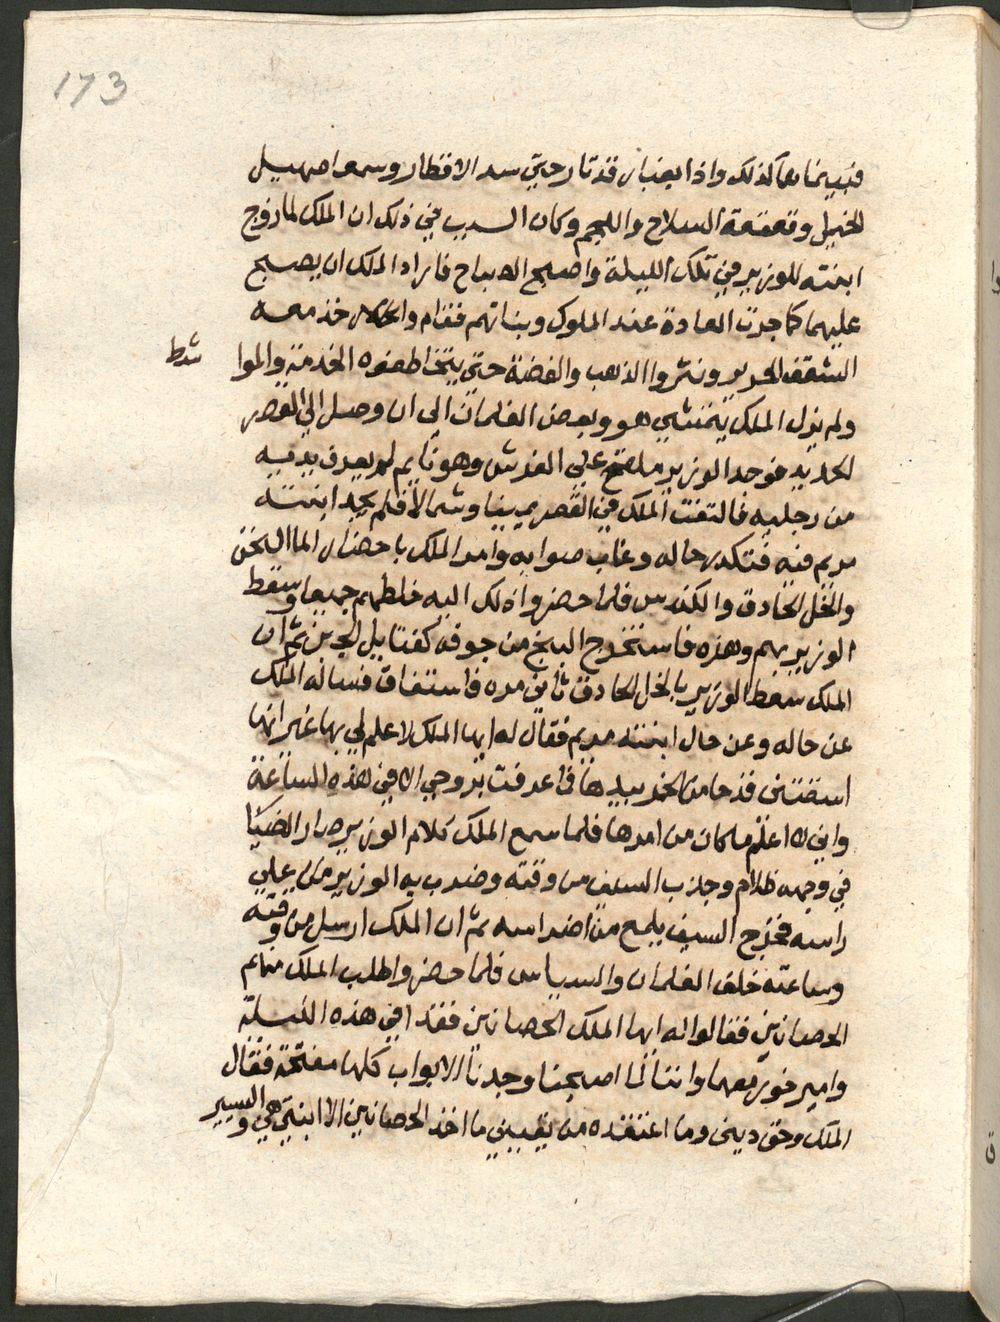 173
فبينما هما كذلك واذا بغبار قد ثار حتي سد الاقطار وسمعوا صهيل
الخيل وقعقعة السلاح واللجم وكان السبب في ذلك ان الملك لما زوج
ابنته للوزير في تلك الليلة واصبح الصباح فاراد الملك ان يصبح
عليهما كما جرت العادة عند الملوك وبناتهم فقام واخذ معه
الشقق الحرير ونثروا الذهب والفضة حتي يتخاطفوه الخدمة والموا
شط
ولم يزل الملك يتمشي هو وبعض الغلمان الي ان وصل الي القصر
الجديد فوجد الوزير ملقح علي الفرش وهو نايم لم يعرف يديه
من رجليه فالتفت الملك في القصر يمينا وشمالا فلم يجد ابنته
مريم فيه فتكدر حاله وغاب صوابه وامر الملك باحضار الما السخن
والخل الحادق والكندس فلما احضروا ذلك اليه خلطهم جميعا وسقط
الوزير بهم وهزه فاستخرج البنج من جوفه كفتايل الجبن ثم ان
الملك سقط الوزير بالخل الحادق ثاني مره فاستفاق فساله الملك
عن حاله وعن حال ابنته مريم فقال له ايها الملك لا علم لي بها غير انها
اسقتني قدحا من الخمر بيدها فما عرفت بروحي الا في هذه الساعة
واني لا اعلم ما كان من امرها فلما سمع الملك كلام الوزير صار الضيا
في وجهه ظلام وجذب السيف من وقته وضرب به الوزير علي
راسه فخرج السيف يلمع من اضراسه ثم ان الملك ارسل من وقته
وساعته خلف الغلمان والسياس فلما حضروا طلب الملك منهم
الحصانين فقالوا له ايها الملك الحصانين فقدا في هذه الليلة
وامير خور معهما واننا لما اصبحنا وجدنا الابواب كلها مفتحة فقال
الملك وحق ديني وما اعتقده من يقيني ما اخذ الحصانين الا ابنتي هي والسير